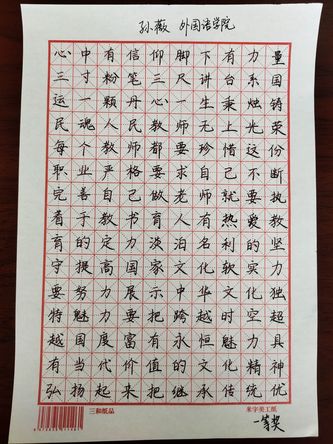 孙薇 外国语学院
心中有信仰脚下有力量
三寸粉笔三尺讲台系国
运一颗丹心一生秉烛铸
民魂人民教师无上光荣
每个教师都要珍惜这份
职业严格要求自己不断
完善自己做老师就要执
着于教书育人有热爱教
育的定力淡泊名利的坚
守提高国家文化软实力
要努力展示中华文化独
特魅力要把跨越时空超
越国度富有永恒魅力具
有当代价值的文化精神
弘扬起来把继承传统优
三和纸品 米字美工纸
一等奖